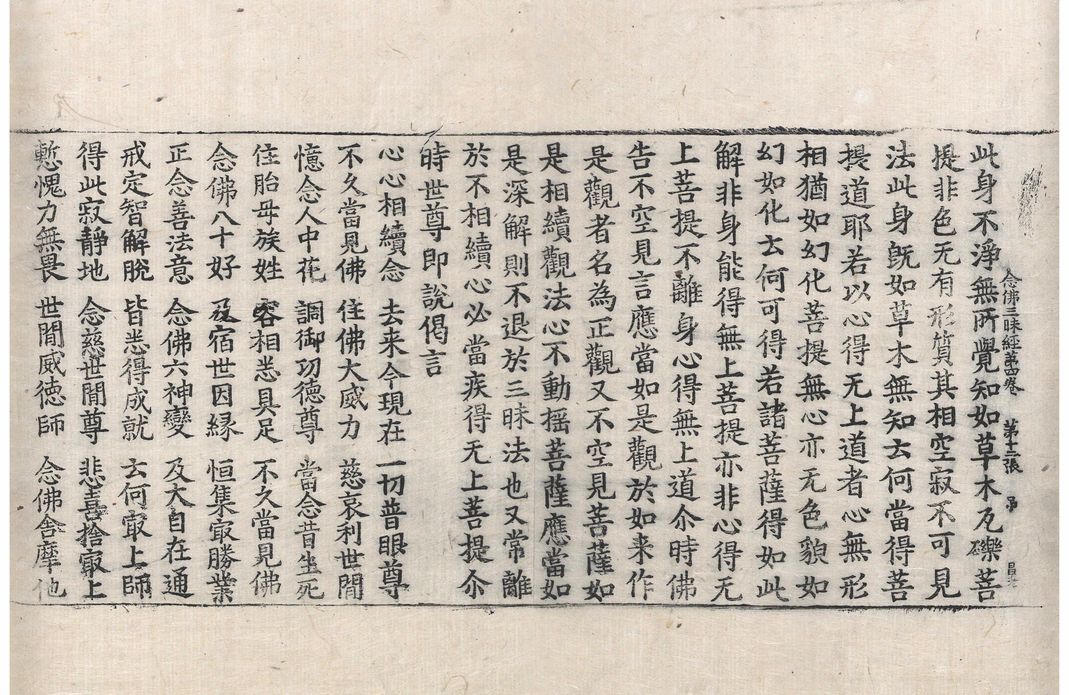 念佛三昧經第四卷　第十三張
此身不淨無所覺知如草木瓦礫菩
提非色无有形質其相空寂不可見
法此身旣如草木無知去何當得菩
提道耶若以心得无上道者心無形
相猶如幻化菩提無心亦无色貌如
幻如化去何可得若諸菩薩得如此
解非身能得無上菩提亦非心得无
上菩提不離身心得無上道尒時佛
告不空見言應當如是觀於如来作
是觀者名為正觀又不空見菩薩如
是相續觀法心不動揺菩薩應當如
是深解則不退於三昧法也又常離
於不相續心必當疾得无上菩提尒
時世尊即說偈言
心心相續念　去来今現在　一切普眼尊
不久當見佛　住佛大威力　慈哀利世間
憶念人中花　調御功德尊　當念昔生死
住胎毋族姓　容相悉具足　不久當見佛
念佛八十好　及宿世因緣　恒集㝡勝業
正念善法意　念佛六神變　及大自在通
戒定智解脫　皆悉得成就　去何㝡上師
得此寂靜地　念慈世間尊　悲喜捨㝡上
慙愧力無畏　世間威德師　念佛舍摩他